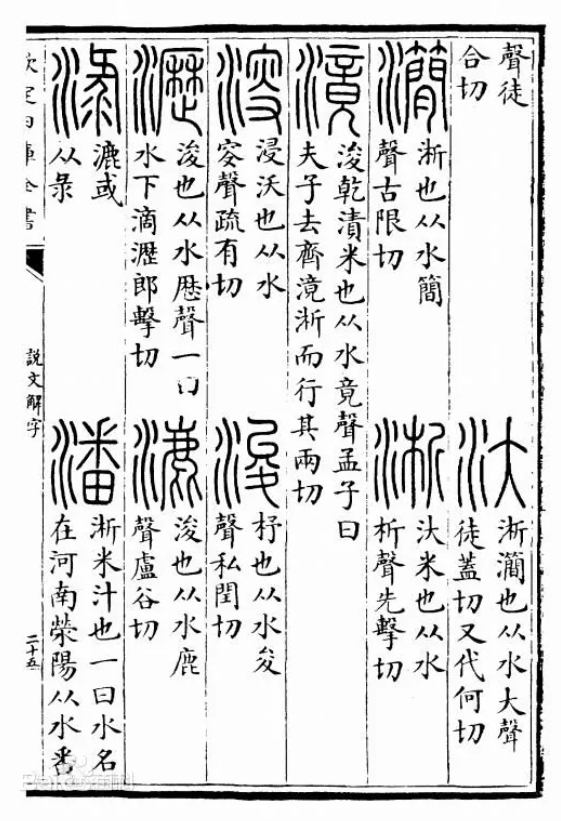 聲徒
合切
汏
淅𤄒也从水大聲
徒蓋切又代何切
𤄒
淅也从水簡
聲古限切
淅
汏米也从水
析聲先擊切
滰
浚乾漬米也从水竟聲孟子曰
夫子去齊滰淅而行其兩切
溲
浸沃也从水
叜聲疏有切
浚
杼也从水夋
聲私閏切
瀝
浚也从水厯聲一曰
水下滴瀝郎擊切
漉
浚也从水鹿
聲盧谷切
淥
漉或
从彔
潘
淅米汁也一曰水名
在河南滎陽从水番
欽定四庫全書
說文解字
二十五